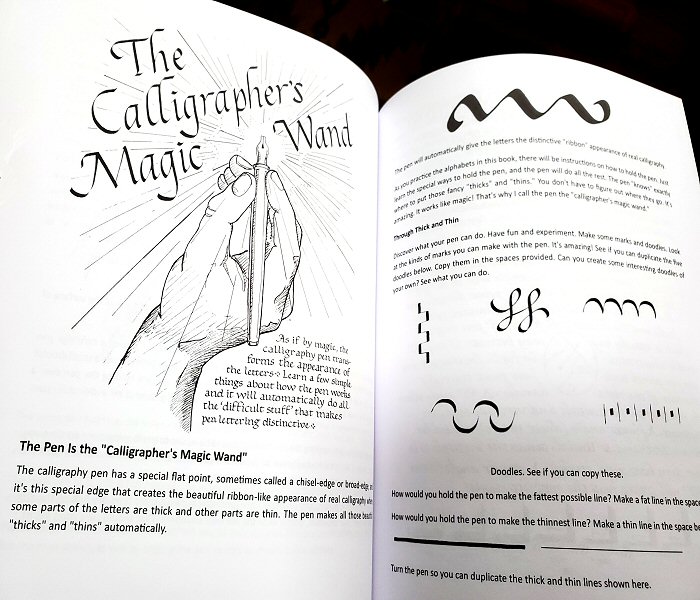 The
Calligrapher's
Magic Wand
As if by magic, the
calligraphy pen trans-
forms the appearance of
the letters Learn a few simple
things about how the pen works
and it will automatically do all
the 'difficult stuff' that makes
pen lettering distinctive
The Pen Is the "Calligrapher's Magic Wand"
The calligraphy pen has a special flat point, sometimes called a chisel-edge or broad-edge
it's this special edge that creates the beautiful ribbon-like appearance of real calligraphy
some parts of the letters are thick and other parts are thin. The pen makes all those
"thicks" and "thins" automatically.
The pen will automatically give the letters the distinctive "ribbon" appearance of real calligraphy.
As you practice the alphabets in this book, there will be instructions on how to hold the pen. Just
learn the special ways to hold the pen, and the pen will do all the rest. The pen "knows" exactly
where to put those fancy "thicks" and "thins." You don't have to figure out where they go. It's
amazing. It works like magic! That's why I call the pen the "calligrapher's magic wand."
Through Thick and Thin
Discover what your pen can do. Have fun and experiment. Make some marks and doodles. Look
at the kinds of marks you can make with the pen. It's amazing! See if you can duplicate the five
doodles below. Copy them in the spaces provided. Can you create some interesting doodles of
your own? See what you can do.
Doodles. See if you can copy these.
How would you hold the pen to make the fattest possible line? Make a fat line in the space
How would you hold the pen to make the thinnest line? Make a thin line in the space
Turn the pen so you can duplicate the thick and thin lines shown here.